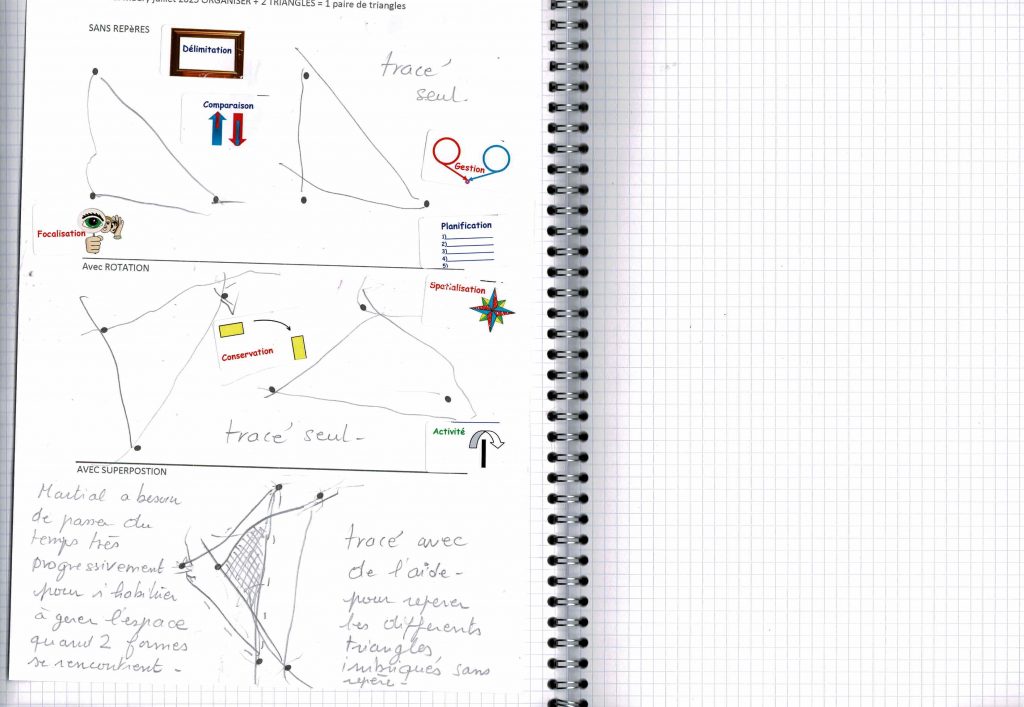 juillet 2023 ORGANISER + 2 TRIANGLES = 1 paire de triangles
SANS REPèRES
Délimitation
tracé
seul.
Comparaison
Gestion
Planification
1)
2)
3)
4)
5)
Focalisation
Avec ROTATION
Spatialisation
Conservation
tracé seul -
Activité
AVEC SUPERPOSTION
Martial a besoin
de passer du
temps très
progressivement
pour s'habituer
à gérer l'espace
quand 2 formes
se rencontrent -
tracé avec
de l'aide -
pour repérer
les différents
triangles
imbriqués sans
repère -